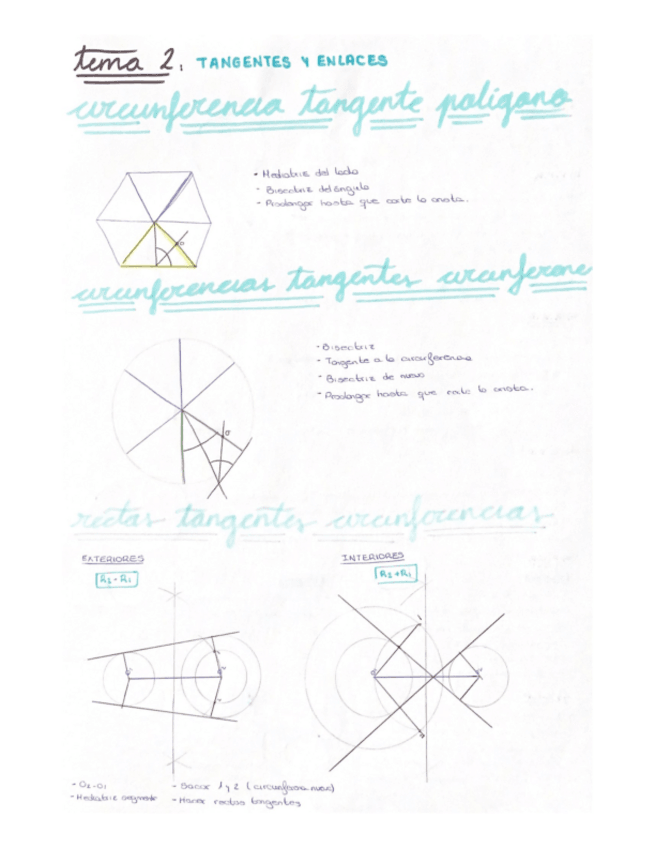 tema 2. TANGENTES Y ENLACES
circunferencia tangente polígono
- Mediatriz del lado
- Bisectriz del ángulo
- Prolongar hasta que corte la
circunferencias tangentes circunferenc
- Bisectriz
- Tangente a la circunferencia
- Bisectriz de nuevo
- Prolongar hasta que corte la
rectas tangentes circunferencias
EXTERIORES
INTERIORES
R2 - R1
R2 + R1
- O2-O1
- Sacar 1 y 2 (circunferen nueva)
- Mediatriz segmento
- Hacer rectas tangentes